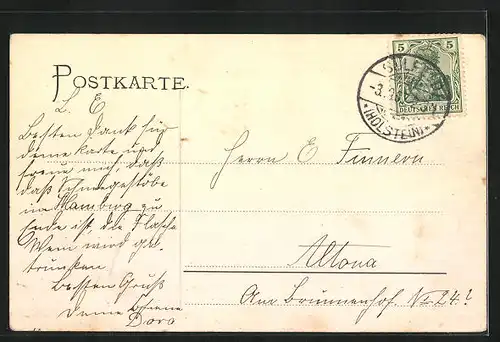 POSTKARTE.
L. E
Besten Dank für
deine Karte und
freue mich, daß
daß Schneegestöbe
im Hamburg zu
Ende ist, die Flasche
Wein wird ge-
trunken
Besten Gruß
Deine
Dora
5 5
DEUTSCHES REICH
SÜLF
-3.
*(HOLSTEIN)*
Herrn E Finnern
Altona
Am Brunnenhof No 24?